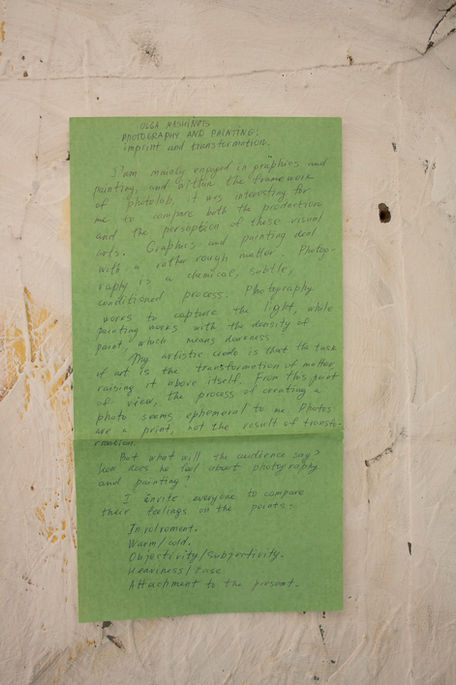 OLGA MASHINETS
PHOTOGRAPHY AND PAINTING:
imprint and transformation.
I am mainly engaged in graphics and
painting, and within the framework
of photolab, it was interesting for
me to compare both the production
and the perseption of these visual
arts. Graphics and painting deal
with a rather rough matter. Photog-
raphy is a chemical, subtle,
conditioned process. Photography
works to capture the light, while
painting works with the density of
paint which means darkness.
My artistic credo is that the task
of art is the transformation of matter,
raising it above itself. From this point
of view, the process of creating a
photo seems ephemeral to me. Photos
are a print, not the result of transfo-
rmation.
But what will the audience say?
How does he feel about photography
and painting?
I invite everyone to compare
their feelings on the points:
Involvement.
Warm/cold.
Objectivity/subjectivity.
Heaviness/Ease
Attachment to the present.